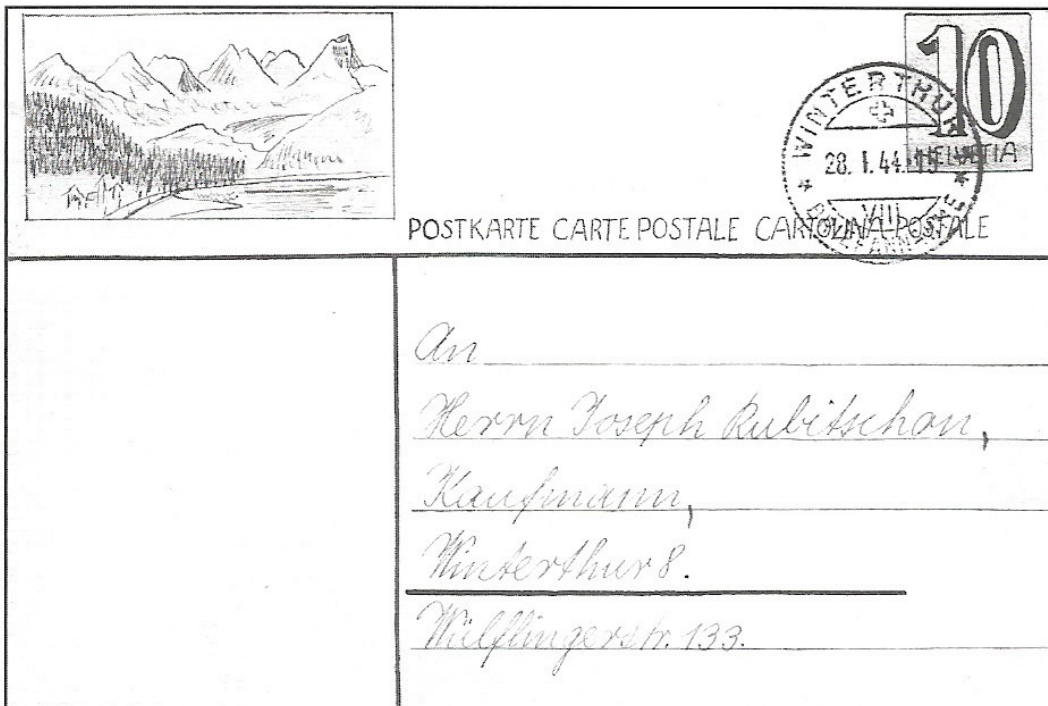 10
HELVETIA
WINTERTHUR
28. I. 44.
VIII
POSTKARTE CARTE POSTALE CARTOLINA POSTALE
An
Herrn Joseph Rubitschon,
Kaufmann,
Winterthur 8.
Wülflingerstr. 133.